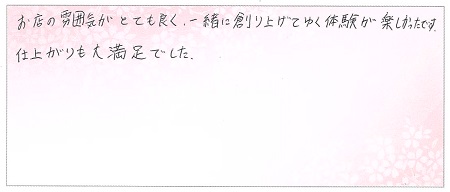 お店の雰囲気がとても良く、一緒に創り上げてゆく体験が楽しかったです。
仕上がりも大満足でした。